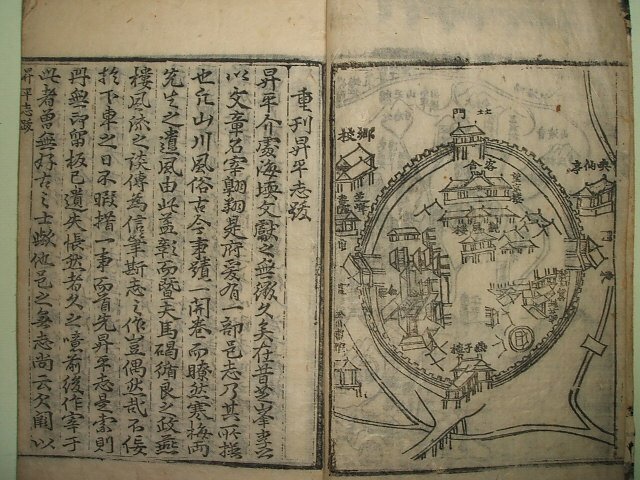 重刊昇平志跋
昇平介處海堧文獻之無徵久矣在昔芝峯李公
以文章名宰翺翔是府爰有一部邑志乃其所撰
也凡山川風俗古今事蹟一開卷而瞭然寒梅雨
先生之遺風由此益彰而曁夫馬碣循良之政燕
樓風流之迹傳爲信筆斯志之作豈偶然哉不佞
於下車之日不暇措一事而首先昇平志是索則
冊無印留板已遺失悵然者久之噫前後作宰于
此者曾無好古之士歟他邑之無志尚云欠闕以
昇平志跋
北門
鄕校
客舍
喚仙亭
燕子樓